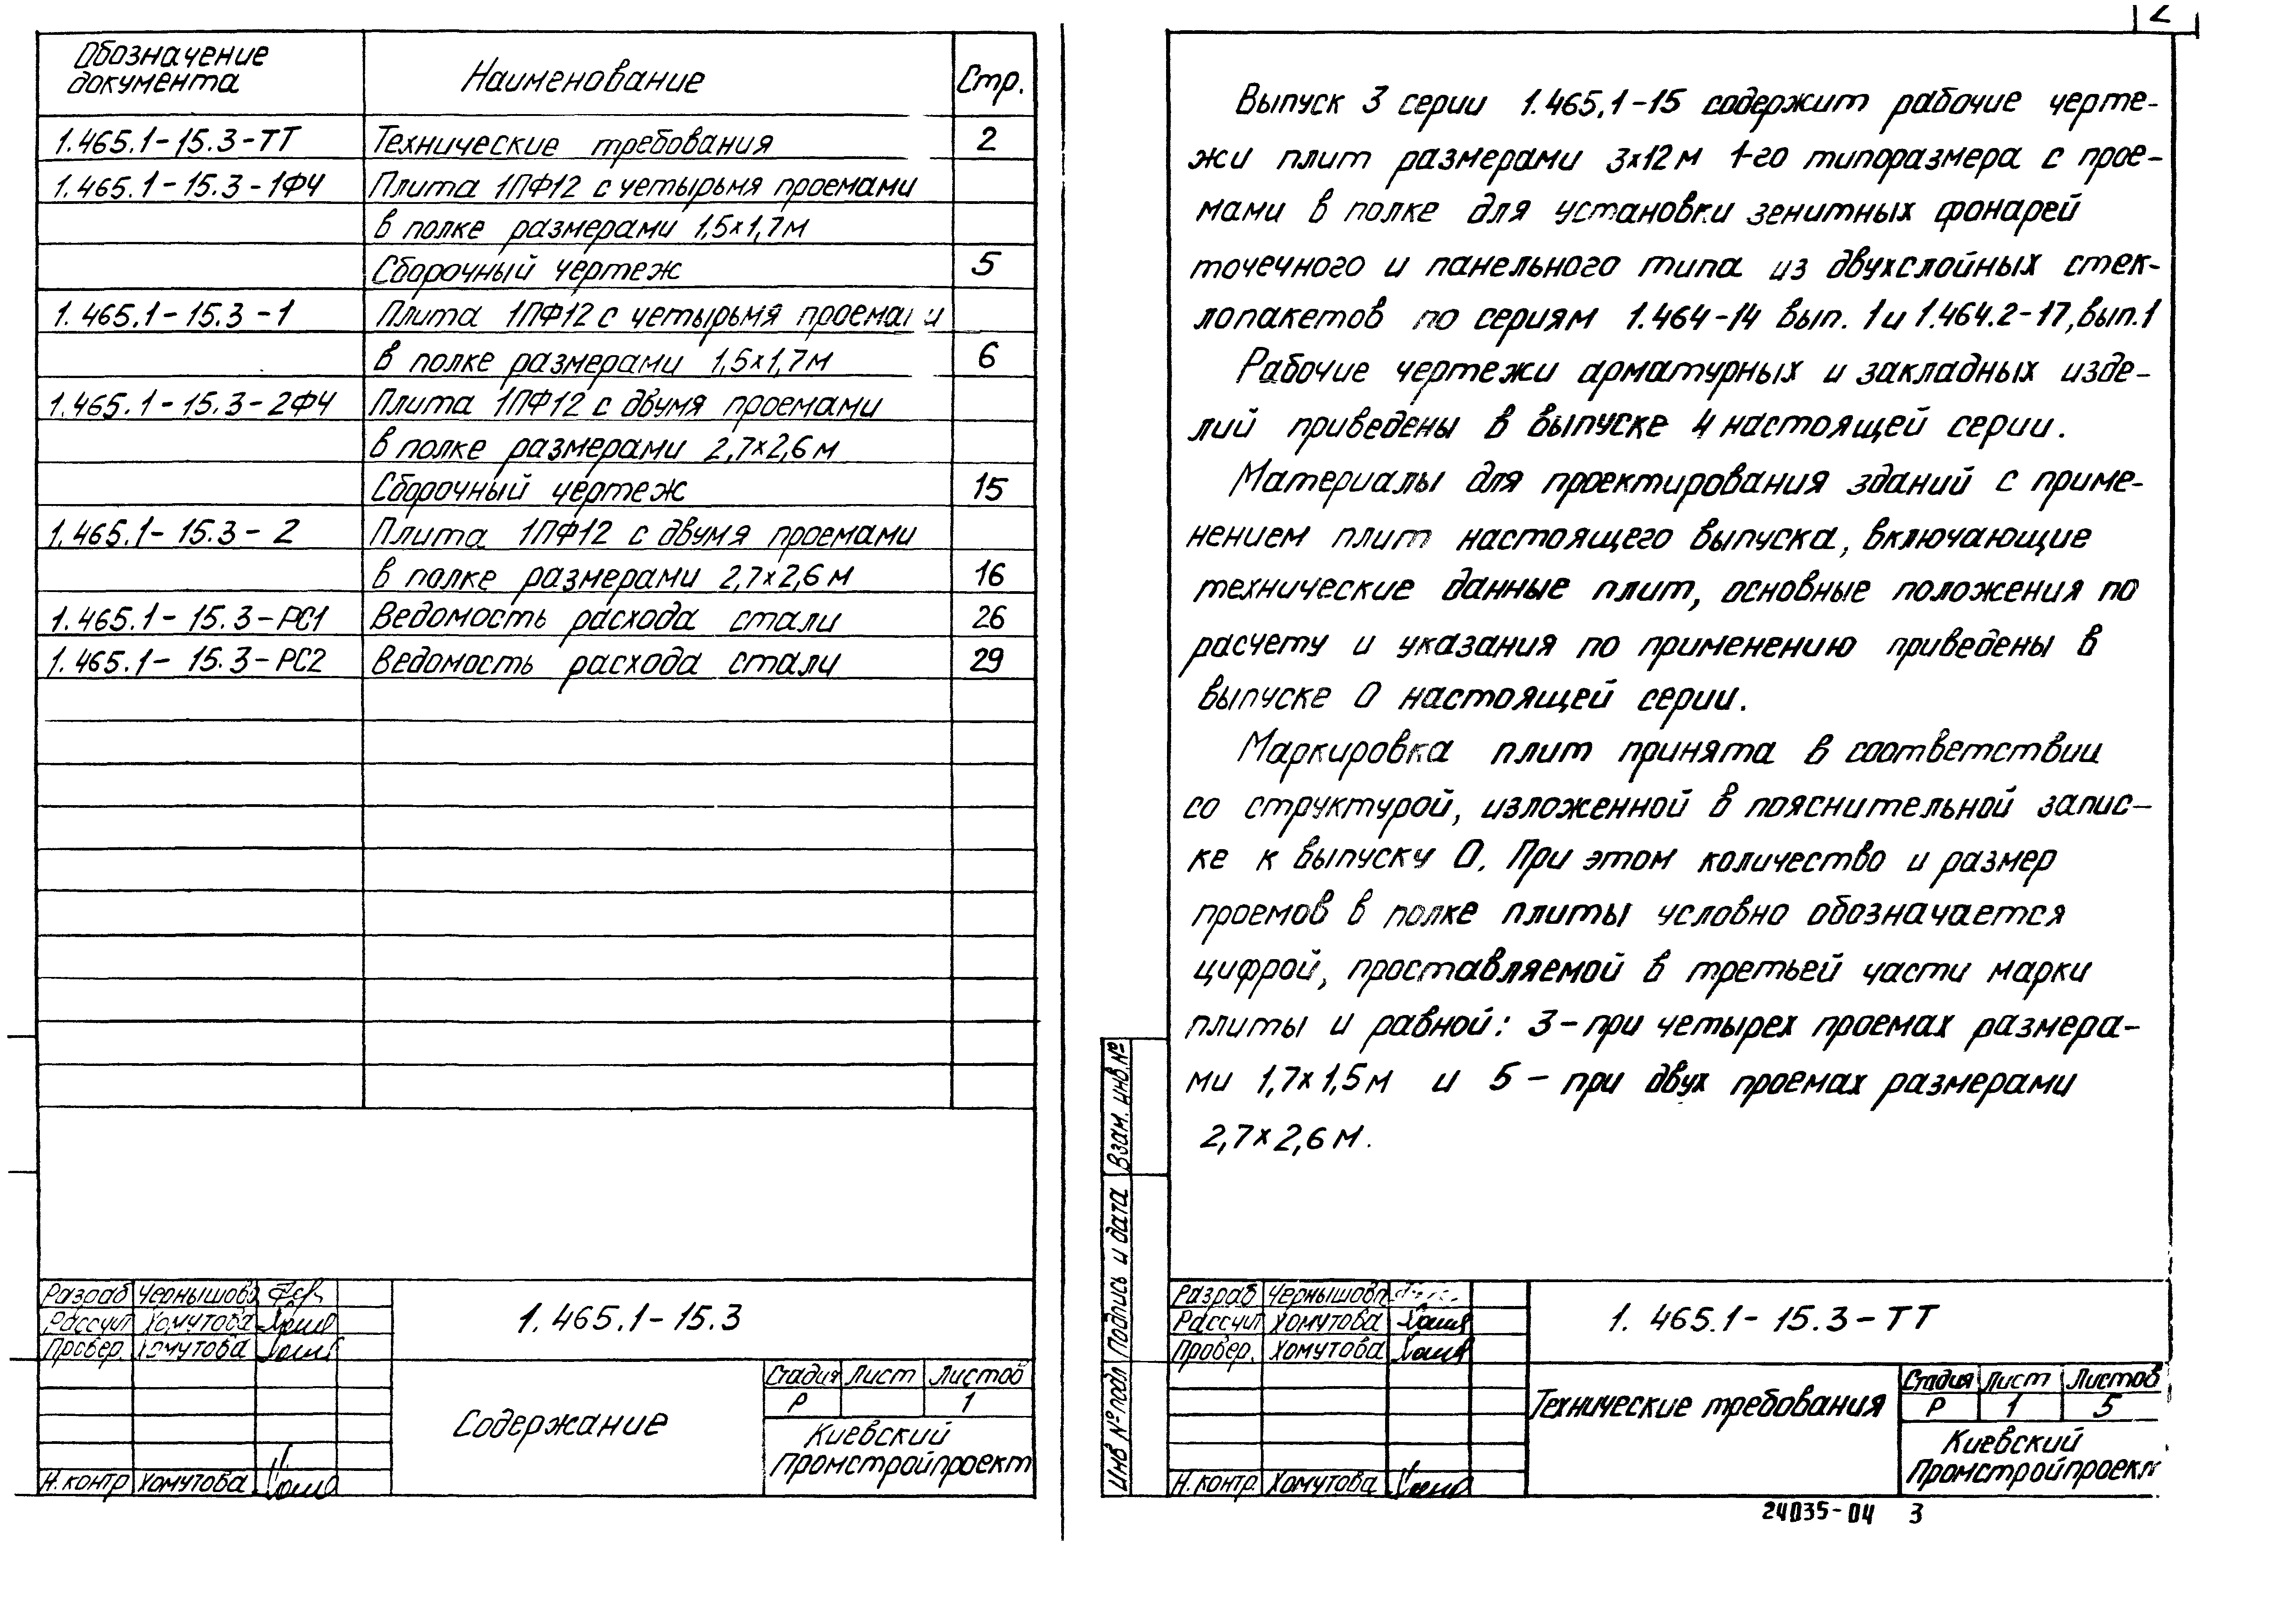 Обозначение документа | Наименование | Стр.
1.465.1-15.3-ТТ | Технические требования | 2
1.465.1-15.3-1ФЧ | Плита 1ПФ12 с четырьмя проемами
в полке размерами 1,5х1,7м
Сборочный чертеж | 5
1.465.1-15.3-1 | Плита 1ПФ12 с четырьмя проемами
в полке размерами 1,5х1,7м | 6
1.465.1-15.3-2ФЧ | Плита 1ПФ12 с двумя проемами
в полке размерами 2,7х2,6м
Сборочный чертеж | 15
1.465.1-15.3-2 | Плита 1ПФ12 с двумя проемами
в полке размерами 2,7х2,6м | 16
1.465.1-15.3-РС1 | Ведомость расхода стали | 26
1.465.1-15.3-РС2 | Ведомость расхода стали | 29
Разраб Чернышова
Рассчит Хомутова
Провер. Хомутова
Н.контр Хомутова
1.465.1-15.3
Содержание
Стадия Лист Листов
Р 1
Киевский
Промстройпроект
2
Выпуск 3 серии 1.465.1-15 содержит рабочие черте-
жи плит размерами 3х12м 1-го типоразмера с прое-
мами в полке для установки зенитных фонарей
точечного и панельного типа из двухслойных стек-
лопакетов по сериям 1.464-14 вып. 1 и 1.464.2-17, вып.1
Рабочие чертежи арматурных и закладных изде-
лий приведены в выпуске 4 настоящей серии.
Материалы для проектирования зданий с приме-
нением плит настоящего выпуска, включающие
технические данные плит, основные положения по
расчету и указания по применению приведены в
выпуске 0 настоящей серии.
Маркировка плит принята в соответствии
со структурой, изложенной в пояснительной запис-
ке к выпуску 0. При этом количество и размер
проемов в полке плиты условно обозначается
цифрой, проставляемой в третьей части марки
плиты и равной: 3-при четырех проемах размера-
ми 1,7х1,5м и 5-при двух проемах размерами
2,7х2,6м.
Взам. инв.№
Подпись и дата
Инв № подл
Разраб Чернышова
Рассчит Хомутова
Провер. Хомутова
Н.контр. Хомутова
1.465.1-15.3-ТТ
Технические требования
Стадия Лист Листов
Р 1 5
Киевский
Промстройпроект
24035-04 3